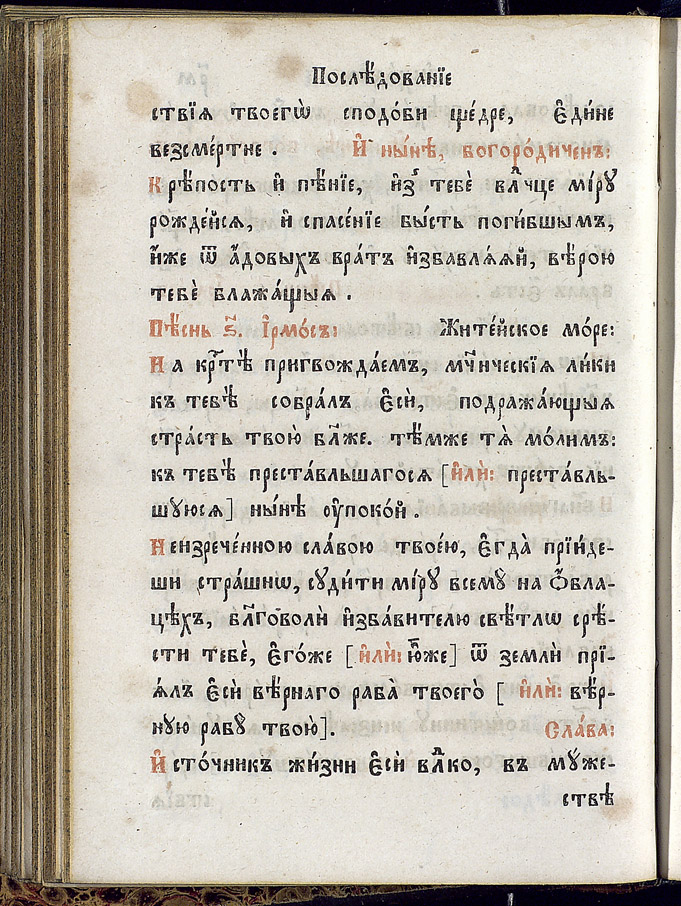 Послѣ́дованїе
ствїѧ твоегѡ̀ сподо́би ще́дре, є҆ди́не
безсме́ртне . И҆ ны́нѣ, богоро́диченъ:
Крѣ́пость и҆ пѣ́нїе, и҆з̾ тебѐ влⷣчце мі́рꙋ
рожде́йсѧ, и҆ спасе́нїе бы́сть поги́бшымъ,
и҆́же ѿ а҆́довыхъ вра́тъ и҆збавлѧ́ѧй, вѣ́рою
тебѐ блажа́щыѧ .
Пѣ́снь ѕ҃. І҆рмо́съ: Жите́йское мо́ре:
На крⷭ҇тѣ̀ пригвожда́емъ, мч҃ническїѧ ли́ки
къ тебѣ̀ собра́лъ є҆сѝ, подража́ющыѧ
стра́сть твою̀ бл҃же. тѣ́мже тѧ̀ мо́лимъ:
къ тебѣ̀ преста́вльшагосѧ [и҆лѝ: преста́вль-
шꙋюсѧ] ны́нѣ ᲂу҆поко́й .
Неизрече́нною сла́вою твое́ю, є҆гда̀ прїи́де-
ши стра́шнѡ, сꙋди́ти мі́рꙋ всемꙋ̀ на ѻ҆́бла-
цѣхъ, бл҃говолѝ и҆зба́вителю свѣ́тлѡ срѣ́-
сти тебѐ, є҆го́же [и҆лѝ: ю҆́же] ѿ землѝ прї-
ѧ́лъ є҆сѝ вѣ́рнаго раба̀ твоего̀ [ и҆лѝ: вѣ́р-
нꙋю рабꙋ̀ твою̀]. Сла́ва:
И҆сто́чникъ жи́зни є҆сѝ влⷣко, въ мꙋ́же-
ствѣ